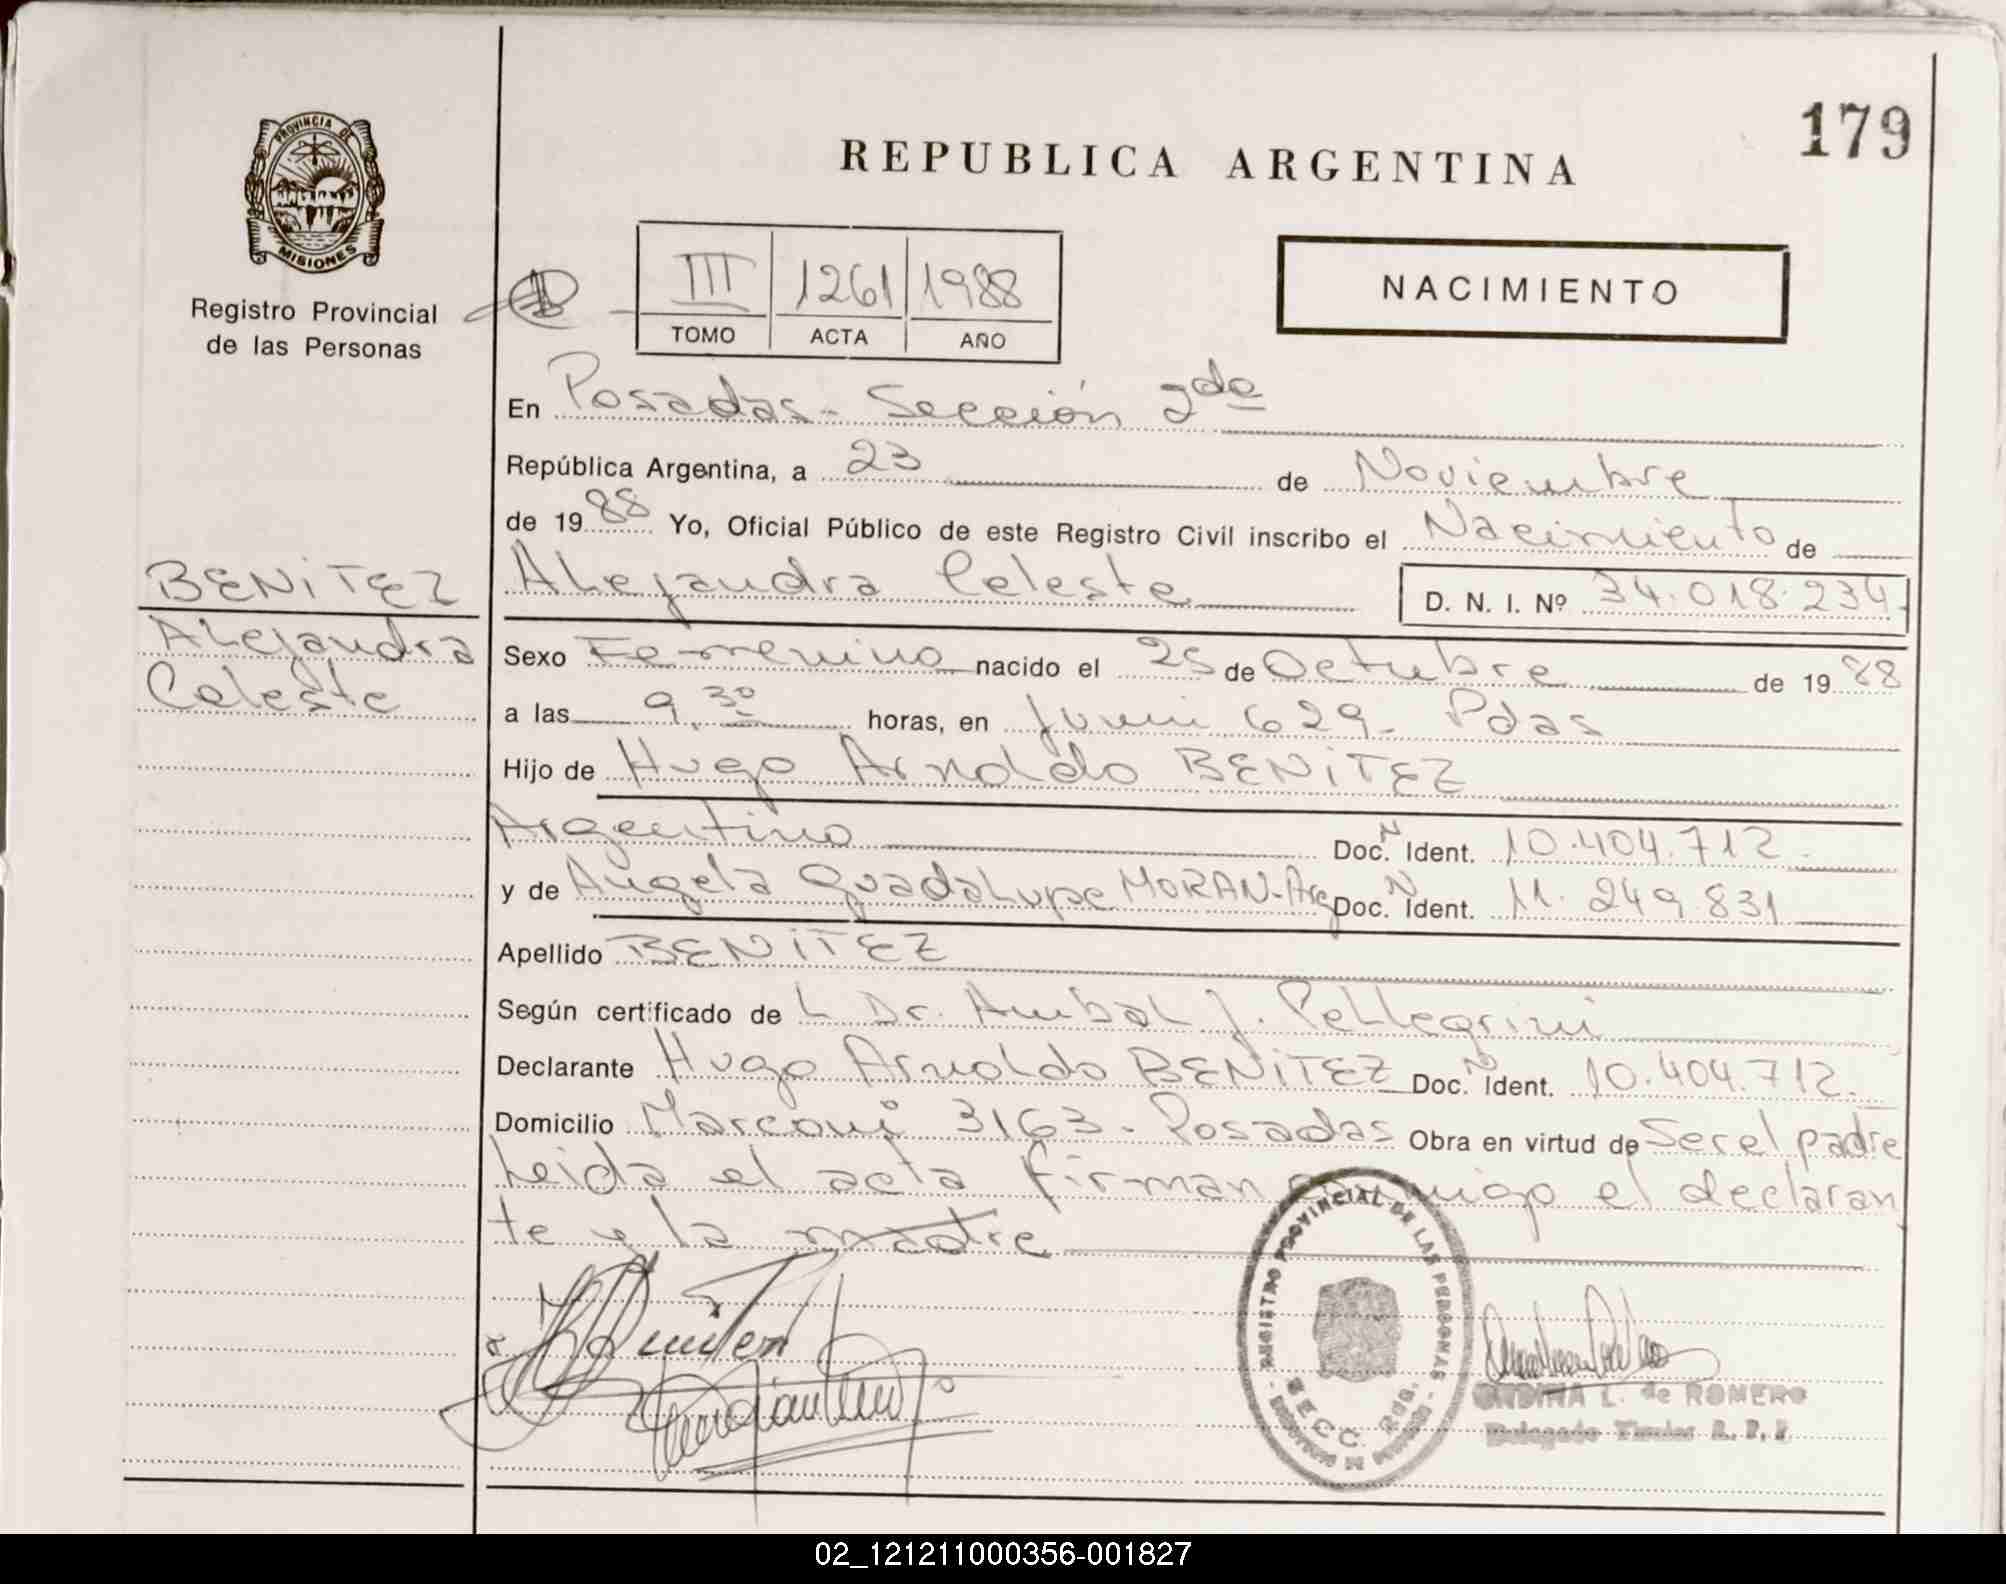 179
PROVINCIA DE
MISIONES
Registro Provincial
de las Personas
REPUBLICA ARGENTINA
III 1261 1988
TOMO ACTA AÑO
NACIMIENTO
En Posadas - Sección 2da
República Argentina, a 23 de Noviembre
de 1988 Yo, Oficial Público de este Registro Civil inscribo el Nacimiento de
BENITEZ
Alejandra
Celeste
Alejandra Celeste D. N. I. Nº 34.018.234
Sexo Femenino nacido el 25 de Octubre de 1988
a las 9.30 horas, en Junin 629 - Pdas
Hijo de Hugo Arnoldo BENITEZ
Argentino Doc. N Ident. 10.404.712.
y de Angela Guadalupe MORAN - Arg Doc. N Ident. 11.249.831
Apellido BENITEZ
Según certificado de L Dr. Anibal J. Pellegrini
Declarante Hugo Arnoldo BENITEZ Doc. N Ident. 10.404.712.
Domicilio Marconi 3163 - Posadas Obra en virtud de Ser el padre
Leida el acta firman conmigo el declaran
te y la madre
REGISTRO PROVINCIAL DE LAS PERSONAS
SECC. 2DA.
PROVINCIA DE MISIONES
ONDINA L. de ROMERO
Delegado Titular R. P. P.
02_121211000356-001827